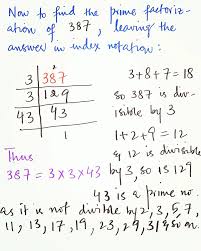 Now to find the prime factoriz-
ation of 387, leaving the
answer in index notation:
3 | 387
3 | 129
43 | 43
1
3+8+7=18
so 387 is div-
isible by 3
1+2+9=12
& 12 is divisible
by 3, so is 129
Thus
387 = 3 x 3 x 43
43 is a prime no.
as it is not divisible by 2, 3, 5, 7,
11, 13, 17, 19, 23, 29, 31 & so on.